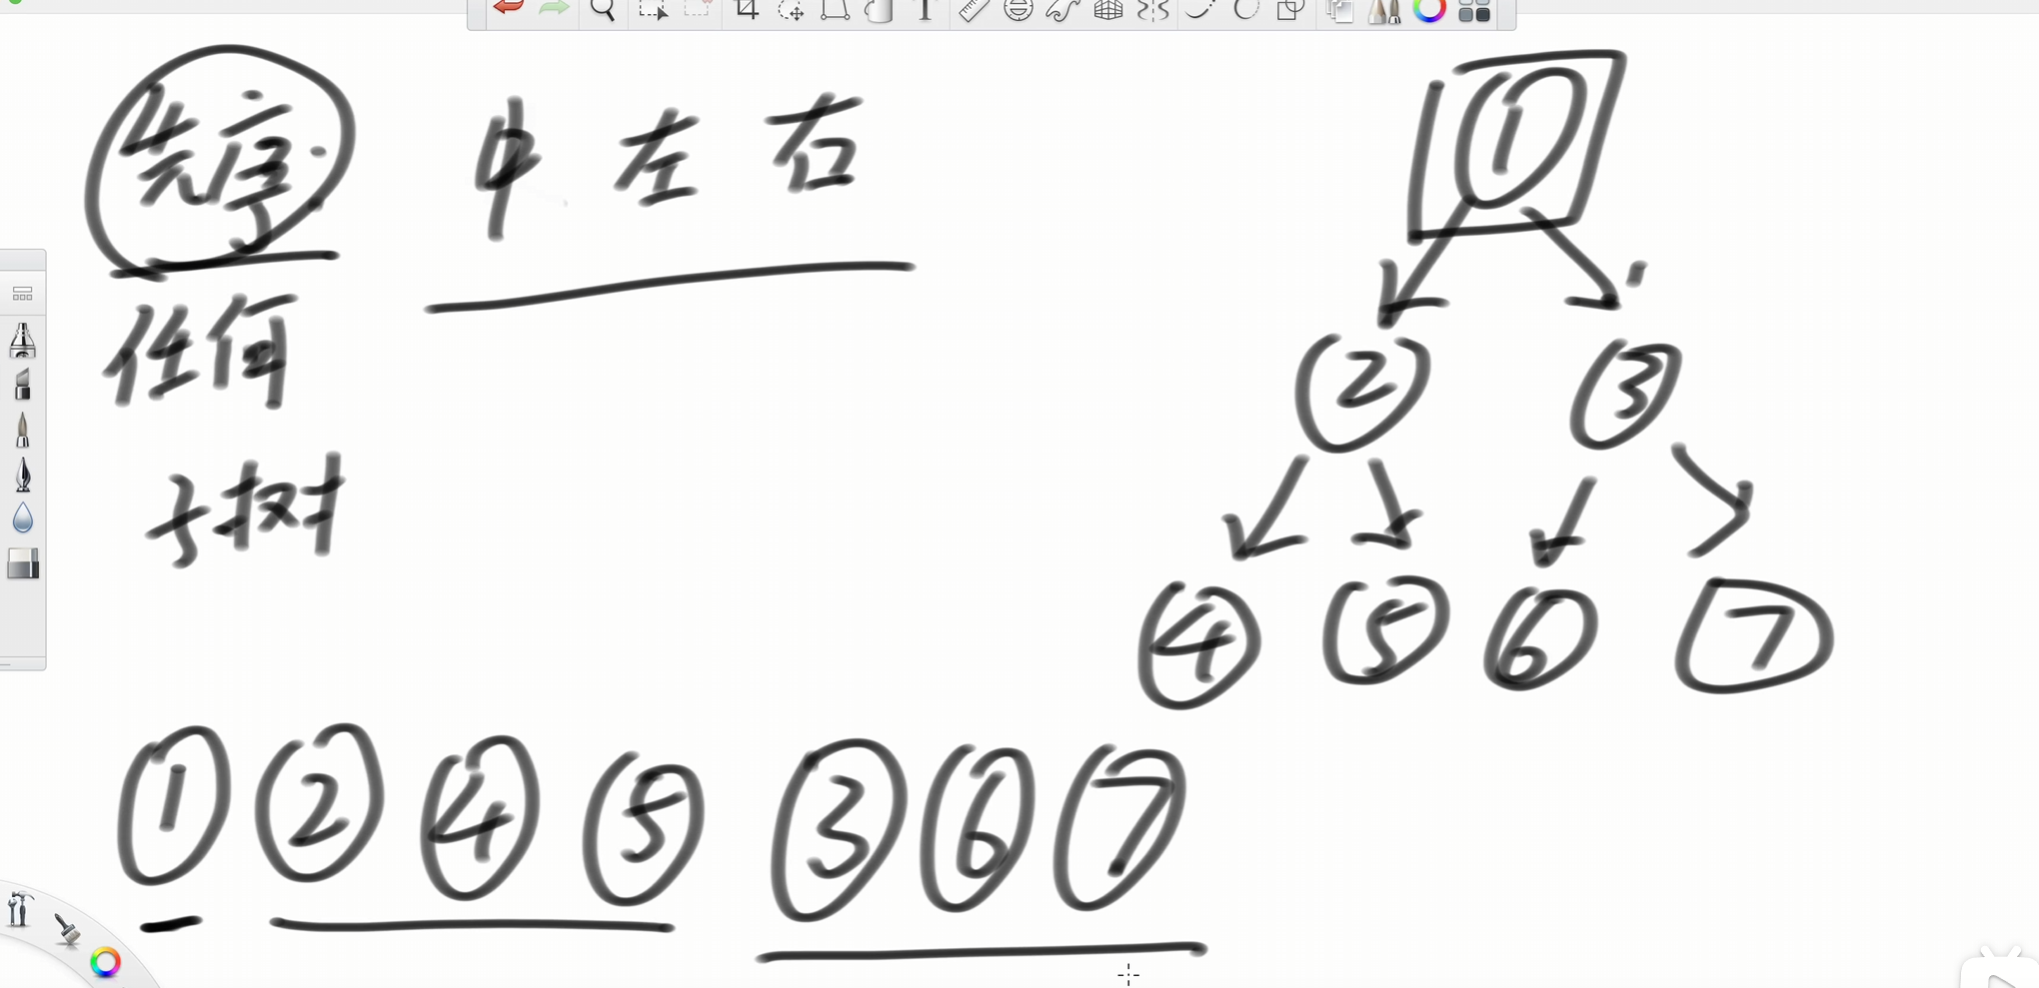 先序 中 左 右
任何
子树
1
2 3
4 5 6 7
1 2 4 5 3 6 7